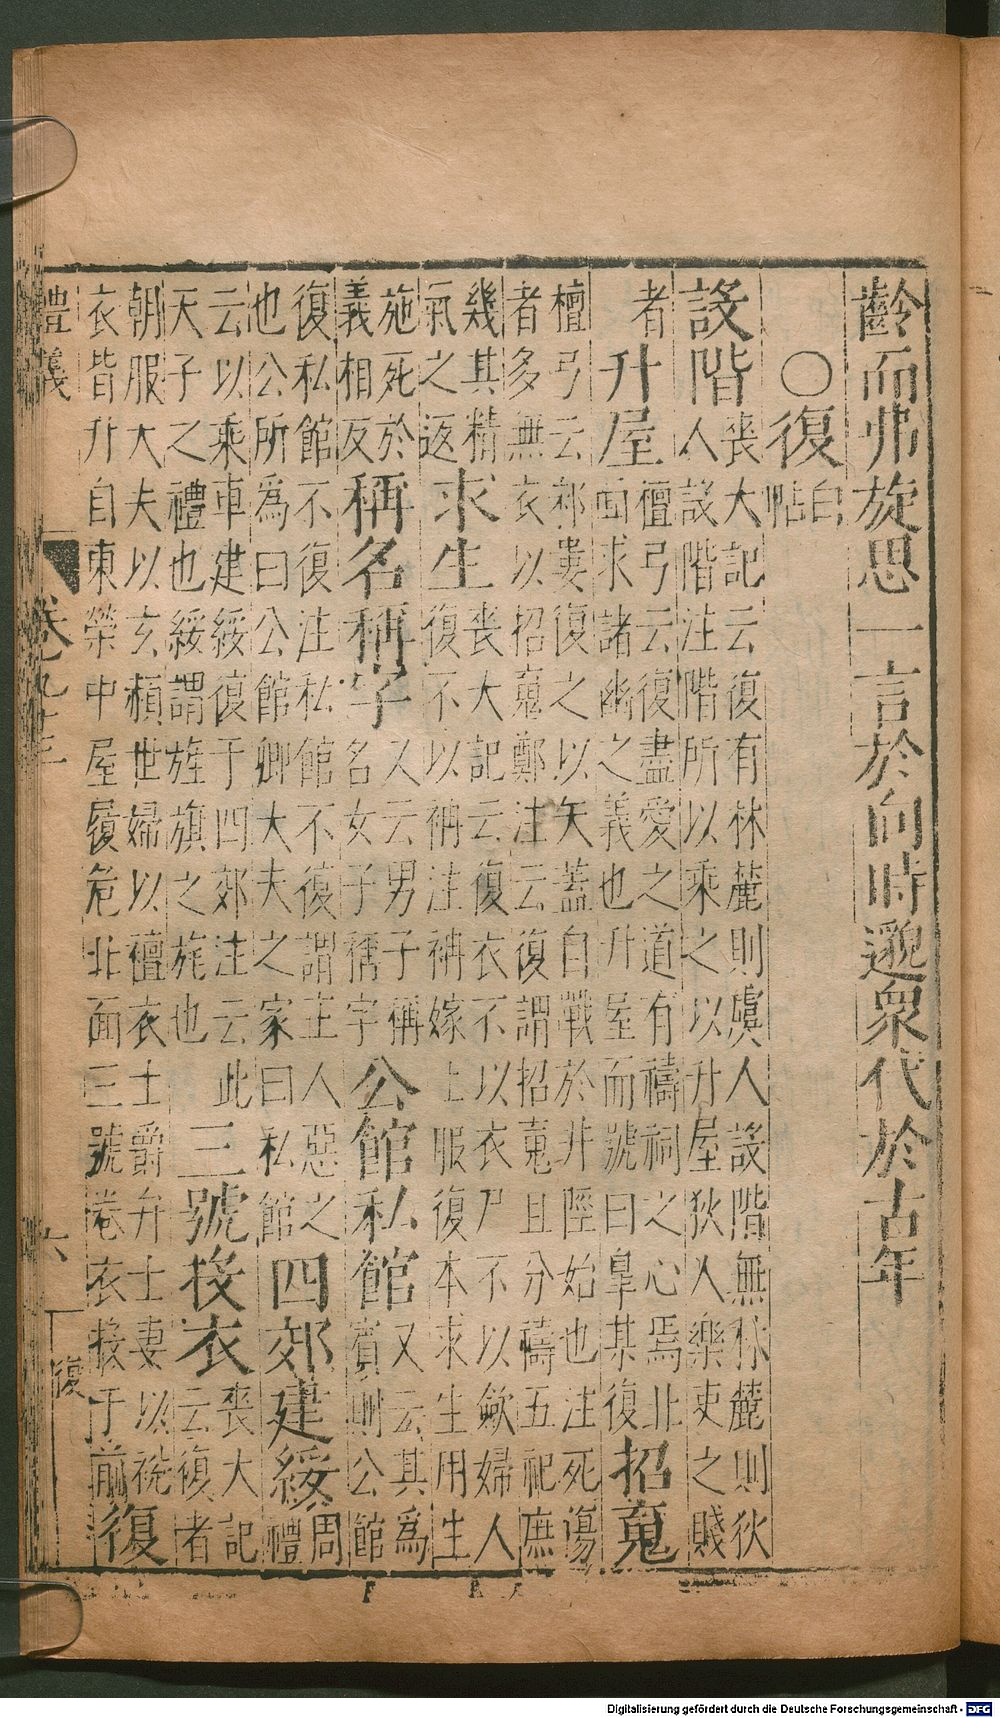 齡而弗旋思一言於向時邈衆代於古年
○復
白
帖
設階
喪大記云復有林麓則虞人設階無林麓則狄
人設階注階所以乘之以升屋狄人樂吏之賤
者
升屋
檀弓云復盡愛之道有禱祠之心焉北
面求諸幽之義也升屋而號曰臯某復
招䰟
檀弓云邾婁復之以矢蓋自戰於升陘始也注死傷
者多無衣以招䰟鄭注云復謂招䰟且分禱五祀庶
幾其精
氣之返
求生
喪大記云復衣不以衣尸不以歛婦人
復不以袡注袡嫁上服復本求生用生
施死於
義相反
稱名稱字
又云男子稱
名女子稱字
公館私館
又云其為
賓則公館
復私館不復注私館不復謂主人惡之
也公所為曰公館卿大夫之家曰私館
四郊建綏
周
禮
云以乘車建綏復于四郊注云此
天子之禮也綏謂旌旗之旄也
三號投衣
喪大記
云復者
朝服大夫以玄赬世婦以襢衣士爵弁士妻以稅
衣皆升自東榮中屋履危北面三號卷衣投于前
復
卷九
六
復
Digitalisierung gefördert durch die Deutsche Forschungsgemeinschaft - DFG